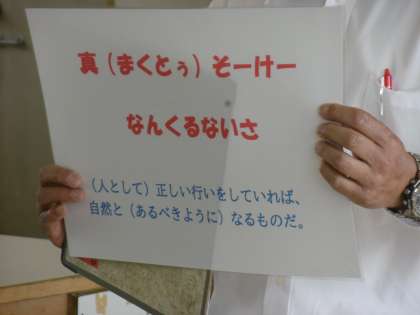 真（まくとぅ）そーけー
なんくるないさ
（人として）正しい行いをしていれば、
自然と（あるべきように）なるものだ。